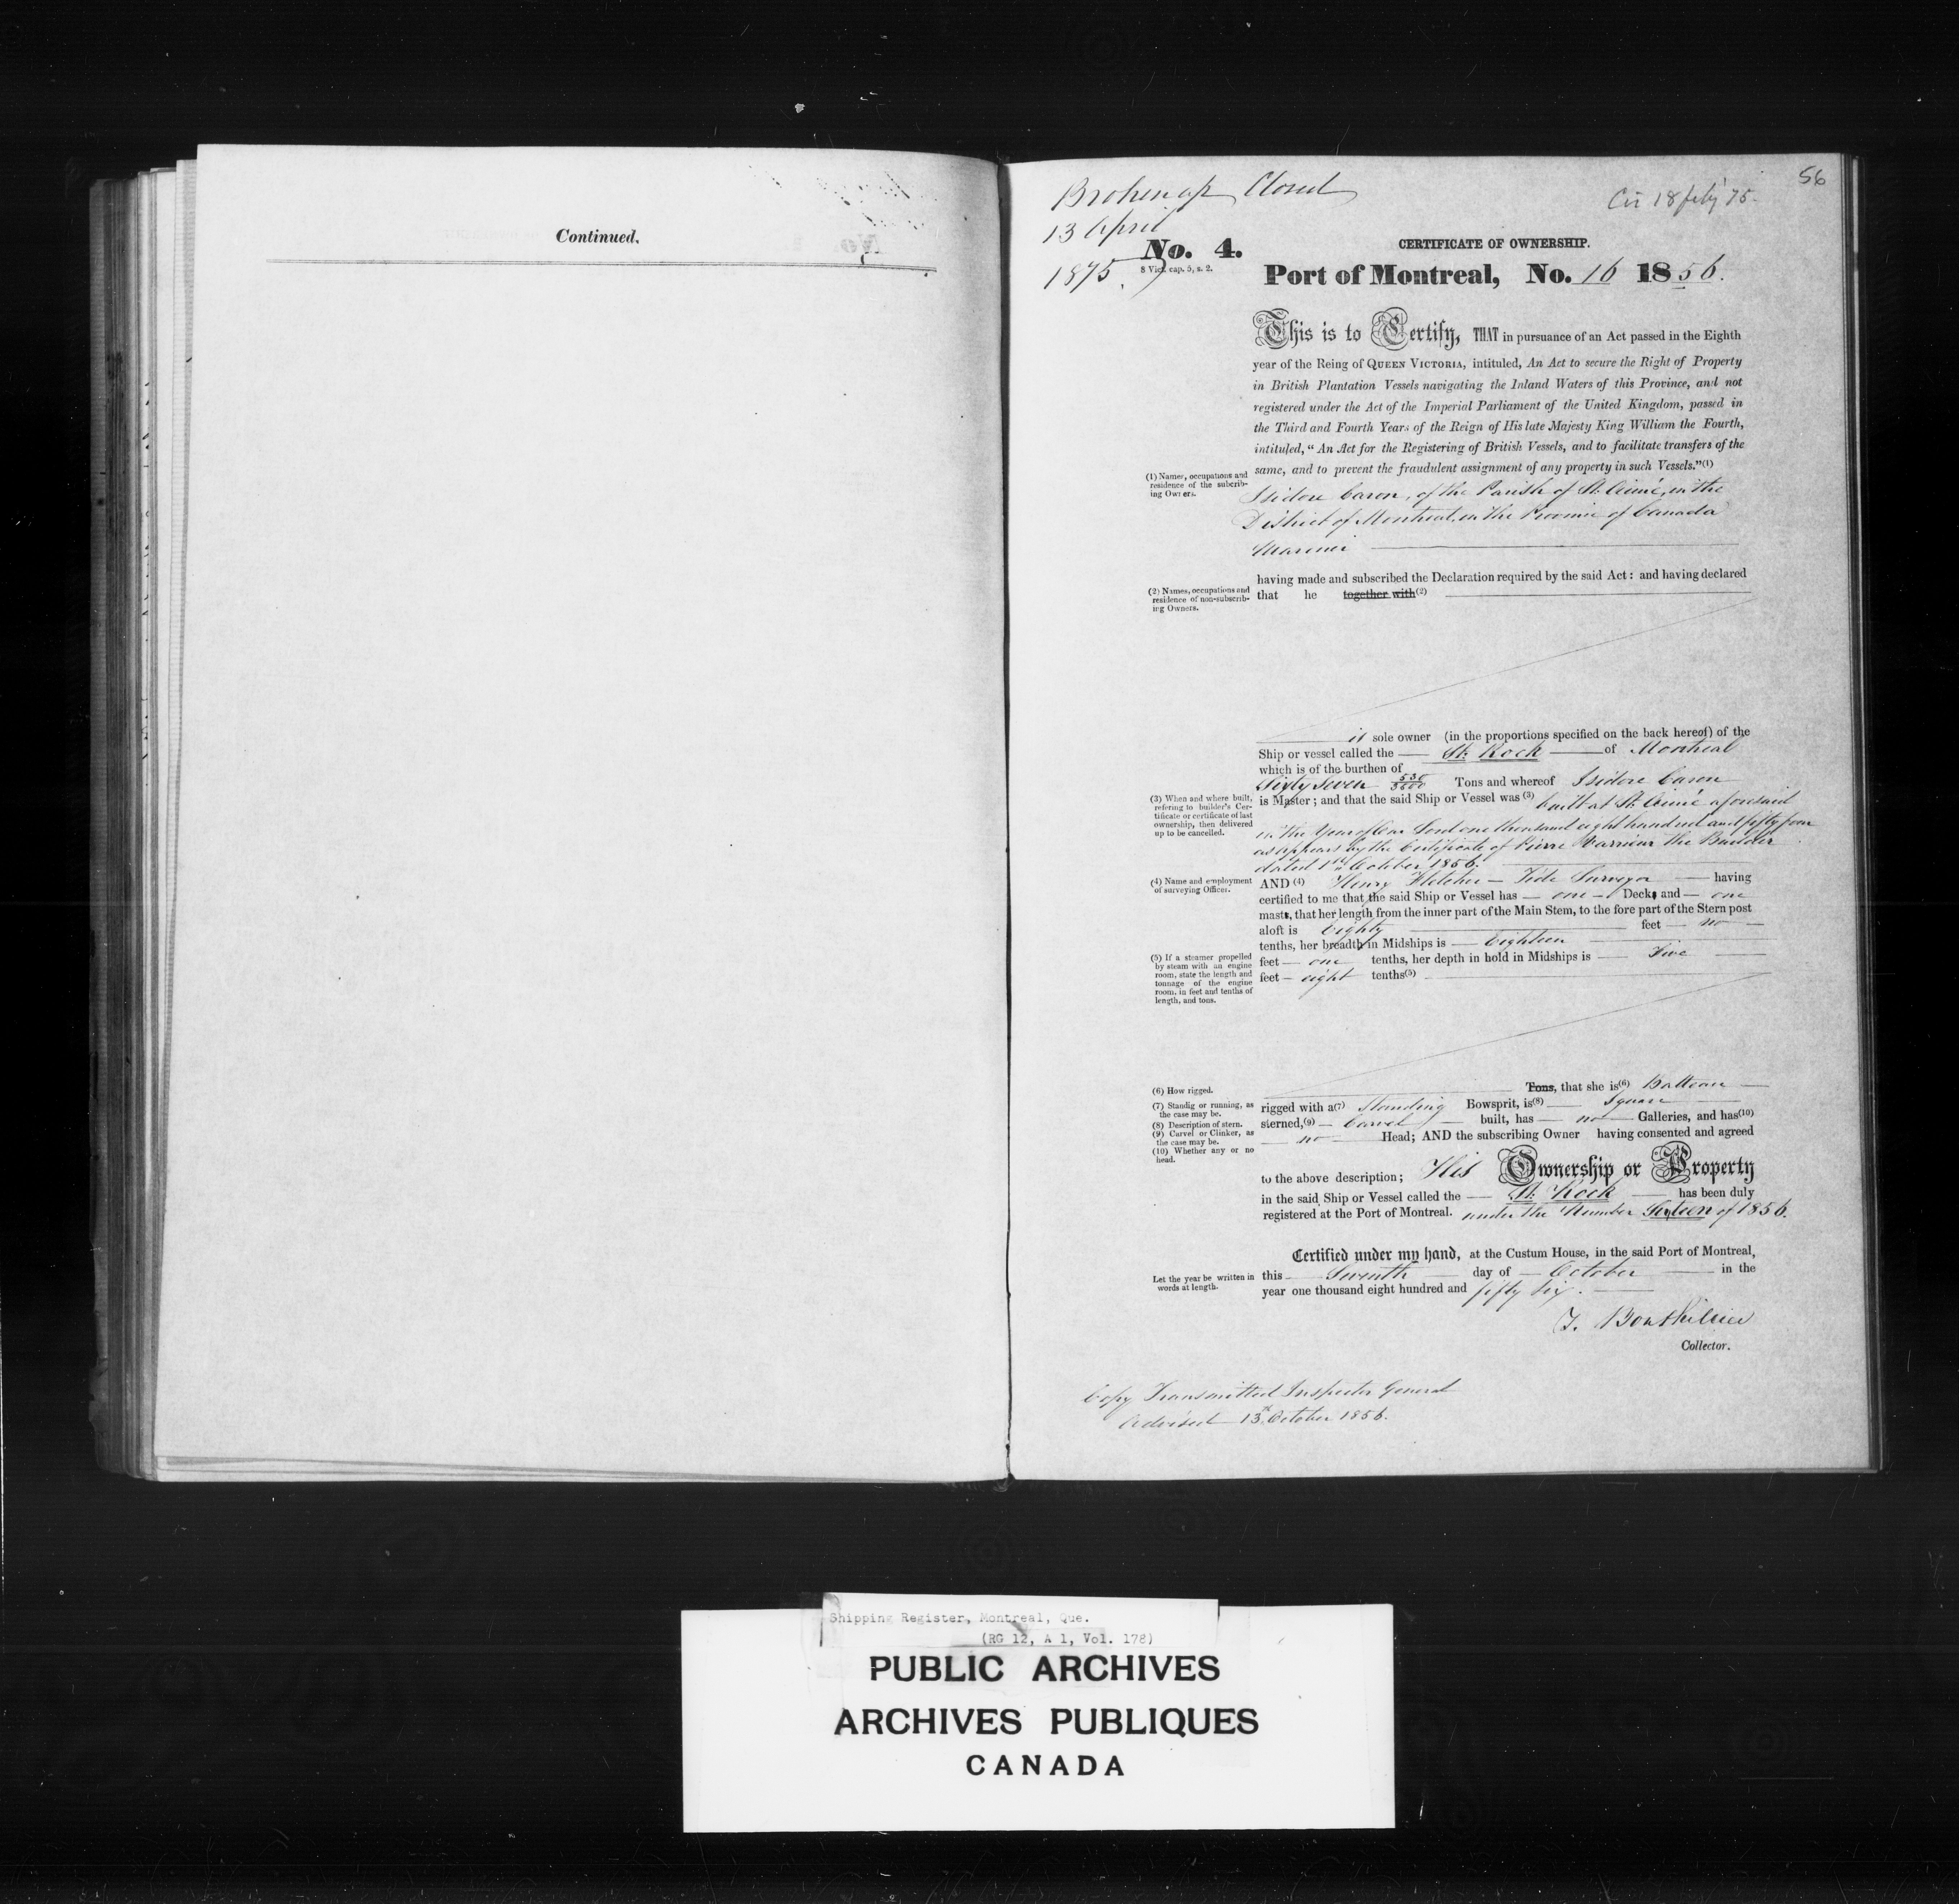 Continued.
56
Broken up Closed
Cir 18 feby '75.
13 April
1875.
No. 4.
8 Vict. cap. 5, s. 2.
CERTIFICATE OF OWNERSHIP.
Port of Montreal, No. 16 1856.
This is to Certify, THAT in pursuance of an Act passed in the Eighth
year of the Reing of QUEEN VICTORIA, intituled, An Act to secure the Right of Property
in British Plantation Vessels navigating the Inland Waters of this Province, and not
registered under the Act of the Imperial Parliament of the United Kingdom, passed in
the Third and Fourth Years of the Reign of His late Majesty King William the Fourth,
intituled, "An Act for the Registering of British Vessels, and to facilitate transfers of the
same, and to prevent the fraudulent assignment of any property in such Vessels."(1)
(1) Names, occupations and
residence of the subcrib-
ing Owners.
Isidore Caron, of the Parish of St. Aimé, in the
District of Montreal, in the Province of Canada
Mariner
having made and subscribed the Declaration required by the said Act: and having declared
that he together with(2)
(2) Names, occupations and
residence of non-subscrib-
ing Owners.
is sole owner (in the proportions specified on the back hereof) of the
Ship or vessel called the St. Rock of Montreal
which is of the burthen of
Sixty Seven 530/3500 Tons and whereof Isidore Caron
is Master; and that the said Ship or Vessel was (3) built at St. Aimé aforesaid
in the Year of Our Lord one thousand eight hundred and fifty four
as appears by the Certificate of Pierre the Builder
dated 1st October 1856.
(3) When and where built,
refering to builder's Cer-
tificate or certificate of last
ownership, then delivered
up to be cancelled.
(4) Name and employment
of surveying Officer.
AND (4) Henry Fletcher - Tide Surveyor having
certified to me that the said Ship or Vessel has one Decks and one
masts, that her length from the inner part of the Main Stem, to the fore part of the Stern post
aloft is Eighty feet no
tenths, her breadth in Midships is Eighteen
feet one tenths, her depth in hold in Midships is Five
feet eight tenths(5)
(5) If a steamer propelled
by steam with an engine
room, state the length and
tonnage of the engine
room, in feet and tenths of
length, and tons.
(6) How rigged.
(7) Standig or running, as
the case may be.
(8) Description of stern.
(9) Carvel or Clinker, as
the case may be.
(10) Whether any or no
head.
Tons, that she is(6) Batteau
rigged with a(7) Standing Bowsprit, is(8) Square
sterned,(9) Carvel built, has no Galleries, and has(10)
no Head; AND the subscribing Owner having consented and agreed
to the above description; His Ownership or Property
in the said Ship or Vessel called the St. Rock has been duly
registered at the Port of Montreal. under the Number Sixteen of 1856.
Certified under my hand, at the Custum House, in the said Port of Montreal,
this Seventh day of October in the
year one thousand eight hundred and fifty six.
Let the year be written in
words at length.
T. Bouthillier
Collector.
Copy Transmitted Inspector General
Advised 13th October 1856.
Shipping Register, Montreal, Que.
(RG 12, A 1, Vol. 178)
PUBLIC ARCHIVES
ARCHIVES PUBLIQUES
CANADA